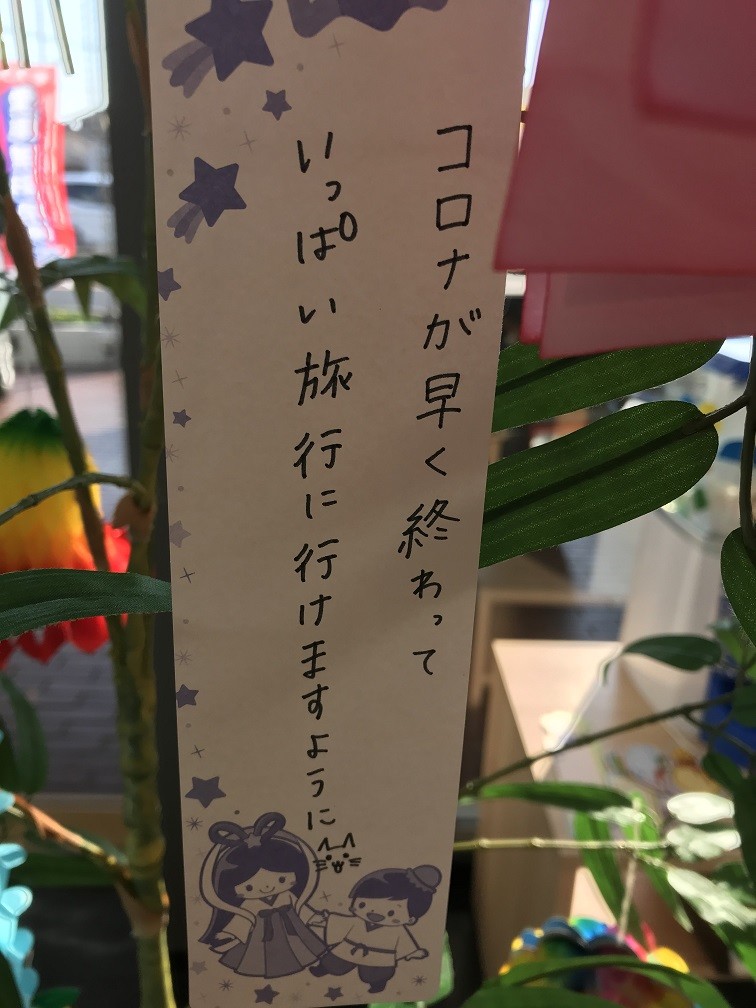 コロナが早く終わって
いっぱい旅行に行けますように